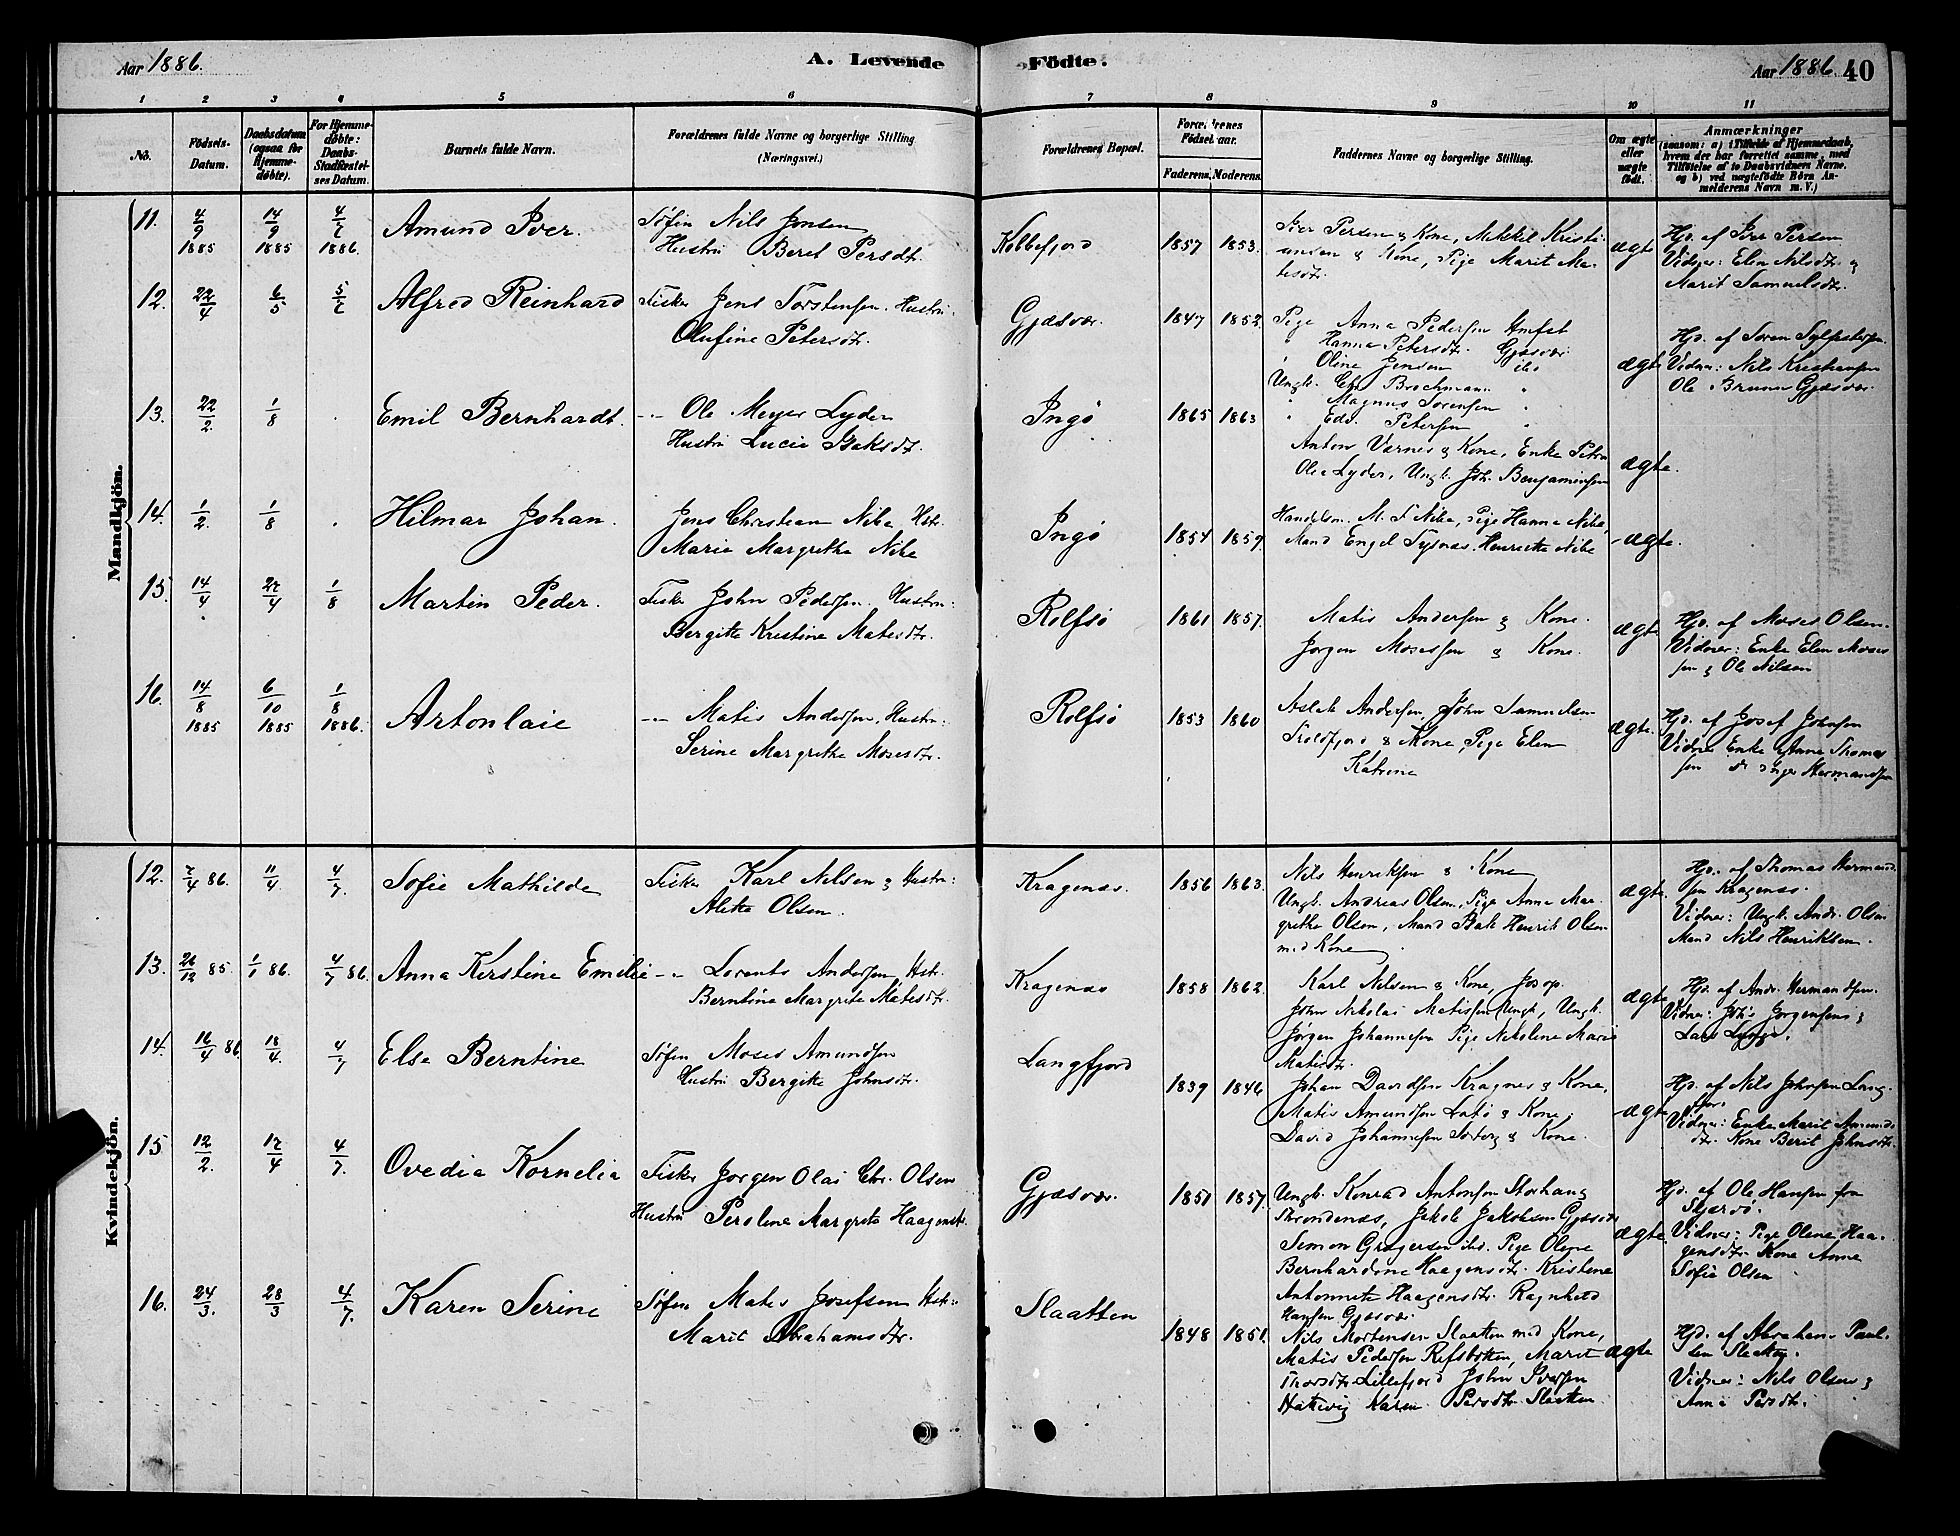 Aar 1886.
A. Levende Fødte.
Aar 1886. 40
1 2 3 4 5 6 7 8 9 10 11
No.
Fødsels-Datum.
Daabsdatum (ogsaa for Hjemmedøbte).
For Hjemmedøbte: Daabs-Stadfæstelses Datum.
Barnets fulde Navn.
Forældrenes fulde Navne og borgerlige Stilling (Næringsvei.)
Forældrenes Bopæl.
Forældrenes Fødselsaar.
Faderens. Moderens.
Faddernes Navne og borgerlige Stilling.
Om ægte eller uægte født.
Anmærkninger
(saasom: a) i Tilfælde af Hjemmedaab, hvem der har forrettet samme, med Tilføielse af to Daabsvidners Navne, og b) ved uægtefødte Børn Anmelderens Navn m. V.)
Mandkjön.
11. 4/9 1885 14/9 1885 4/7 1886. Amund Iver.
Søfin Nils Jonsen
Hustru Beret Persdtr.
Kobbefjord 1857 1853.
Iver Persen & Kone, Mikkil Kristi-
ansen & Kone, Pige Marit Ma-
tisdtr.
ægte
Hjd. af Iver Persen
Vidner: Elen Nilsdtr &
Marit Samuelsdtr.
12. 22/4 6/5 5/7 Alfred Reinhard
Fisker Jens Torstensen. Hustru:
Olufine Petersdtr.
Gjæsvær. 1847 1852.
Pige Anna Pedersen Hmfst
" Hanna Petersdtr. Gjæsvær
" Oline Jensen ibd
Ungk. Chr. Brochmann "
" Magnus Sørensen "
" Edv. Petersen "
ægte
Hjd. af Søren Sylfestersen.
Vidner: Nils Kristiansen
Ole Bruun Gjæsvær.
13. 22/2. 1/8 . Emil Bernhardt.
-"- Ole Meyer Lyder
Hustru Lucie Isaksdtr.
Ingø 1865 1863
Anton Varnes & Kone, Enke Petra
Olea Lyder, Ungk. Joh. Benjaminsen
ægte.
14. 1/2. 1/8 . Hilmar Johan.
Jens Christian Nibe Hstr.
Marie Margrethe Nibe
Ingø 1854 1859.
Handelsm. M. F. Nibe, Pige Hanna Nibe,
Mand Engel Tysnæs, Henriette Nibe
ægte.
15. 14/4 27/4 1/8 Martin Peder.
Fisker John Pedersen. Hustru:
Bergitte Kristine Matisdtr.
Rolfsø 1861 1857.
Matis Andersen & Kone.
Jørgen Mosessen & Kone.
ægte
Hjd. af Moses Olsen.
Vidner: Enke Elen Moses
sen & Ole Nilsen
16. 14/8 1885 6/10 1885 1/8 1886. Artonlaie
-"- Matis Andersen, Hustru:
Serine Margrethe Mosesdtr.
Rolfsø 1853 1860
Aslak Andersen, John Samuelsen
Troldfjord & Kone, Pige Elen
Katrine
ægte.
Hjd. af Josef Johnsen
Vidner Enke Anne Thomas
sen & Inger Hermandsen
Kvindekjön.
12. 7/4 86. 11/4. 4/7. Sofie Mathilde
Fisker Karl Nilsen & Hustru:
Alette Olsen.
Kragenæs. 1856 1863.
Nils Henriksen & Kone
Ungk. Andreas Olsen, Pige Anna Mar-
grethe Olsen, Mand Bate Henrik Olsen
med Kone.
ægte.
Hjd. af Thomas Hermand
sen Kragenæs.
Vidner: Ungk. Andr. Olsen
Mand Nils Henriksen.
13. 26/12 85. 1/1 86. 4/7 86. Anna Kerstine Emelie
-"- Lorents Andersen, Hstr.
Berntine Margrete Matisdtr.
Kragenæs 1858 1862.
Karl Nilsen & Kone, Josop.
John Nikolai Matissen Ungk, Ungk.
Jørgen Johannesen Pige Nikoline Marie
Matisdtr.
ægte
Hjd. af Andr. Hermandsen.
Vidner: Johs Jørgensen &
14. 16/4 86. 18/4. 4/7 Else Berntine
Søfin Moses Amundsen
Hustru Bergitte Johnsdtr.
Langfjord 1839 1846
Johan Davidsen Kragnes & Kone,
Matis Amundsen Latø & Kone,
David Johannesen Sørberg & Kone.
ægte
Hjd. af Nils Johnsen Lang-
fjor.
Vidner: Enke Marit Amunds
dtr. Kone Berit Johnsdtr.
15. 12/2. 17/4 4/7. Ovedia Kornelia
Fisker Jørgen Olai Chr. Olsen
Hustru Peroline Margrete Haagensdtr.
Gjæsvær. 1851 1857.
Ungk. Konrad Antonsen Storhaug
Throndenæs, Jakob Jakobsen Gjæsvær
Simon Grøgersen ibd. Pige Olene
Bernhardine Haagensdtr. Kristine
Antonnette Haagensdtr. Ragnhild
Hansen Gjæsvær.
ægte.
Hjd. af Ole Hansen fra
Skjærvø.
Vidner: Pige Olene Haa-
gensdtr. Kone Anne
Sofie Olsen
16. 24/3. 28/3 4/7. Karen Serine
Søfin Matis Josefsen Hstr:
Marit Abrahamsdtr.
Slaatten 1848 1851.
Nils Mortensen Slaatten med Kone,
Matis Pedersen Refsbotten, Marit
Thorsdtr Lillefjord John Iversen
Hatvig Karen Persdtr. Slaatten.
ægte
Hjd. af Abraham Paul-
sen Slaatten.
Vidner: Nils Olsen &
Anne Persdtr.